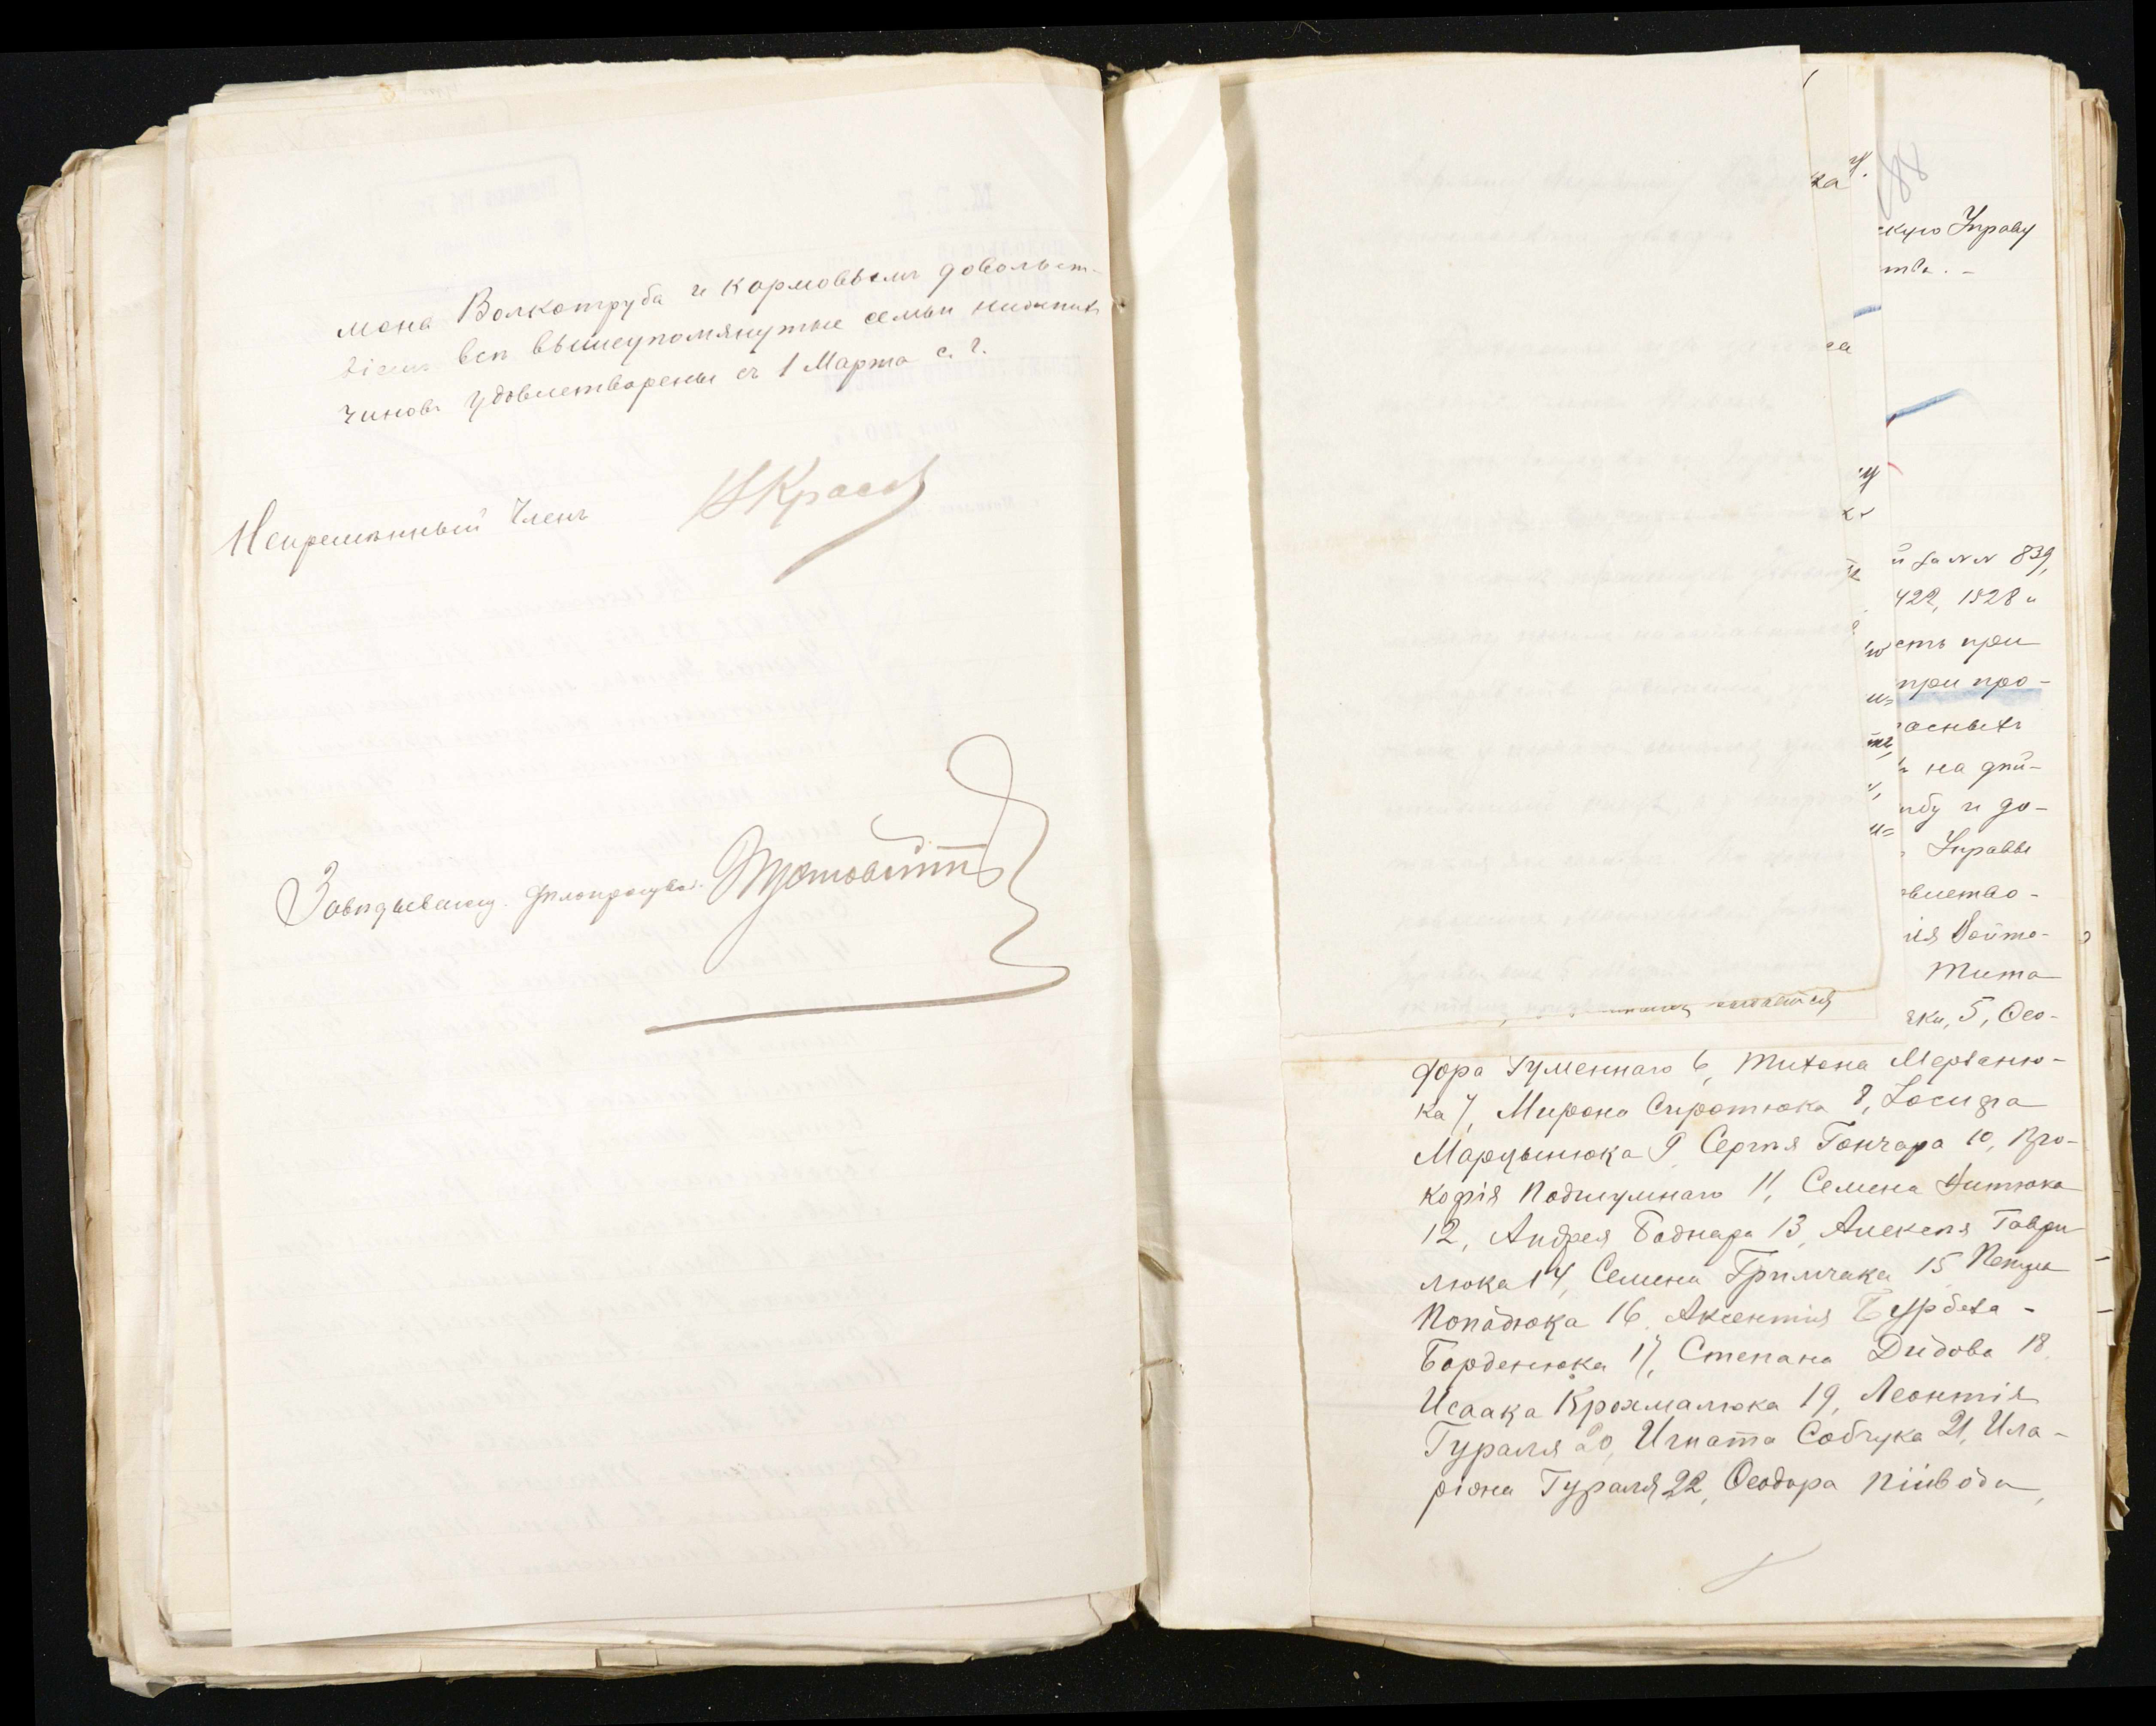 мона Волкотруба и кормовымъ довольст-
віемъ всѣ вышеупомянутые семьи нижнихъ
чиновъ удовлетворены съ 1 Марта с. г.
Непремѣнный Членъ
НКрасов
Завѣдывающ. дѣлопроизв.
188
ка
скую Управу
тва. -
за №№ 839,
422, 1528 и
сть при
при про-
асныхъ
на дѣй-
жбу и до-
Управы
влетво-
ія Войто-
Тита
5, Ѳео-
дора Гуменнаго 6, Тихона Мерваню-
ка 7, Мирона Сиротюка 8, Іосифа
Марцынюка 9, Сергѣя Гончара 10, Про-
кофія Подшумнаго 11, Семена Витюка
12, Андрея Боднара 13, Алексѣя Гаври
люка 14, Семена Гримчака 15, Петра
Попадюка 16, Аксентія Бурбеха -
Борденюка 17, Степана Дидова 18,
Исаака Крохмалюка 19, Леонтія
Гураля 20, Игната Собчука 21, Ила-
ріона Гураля 22, Ѳеодора